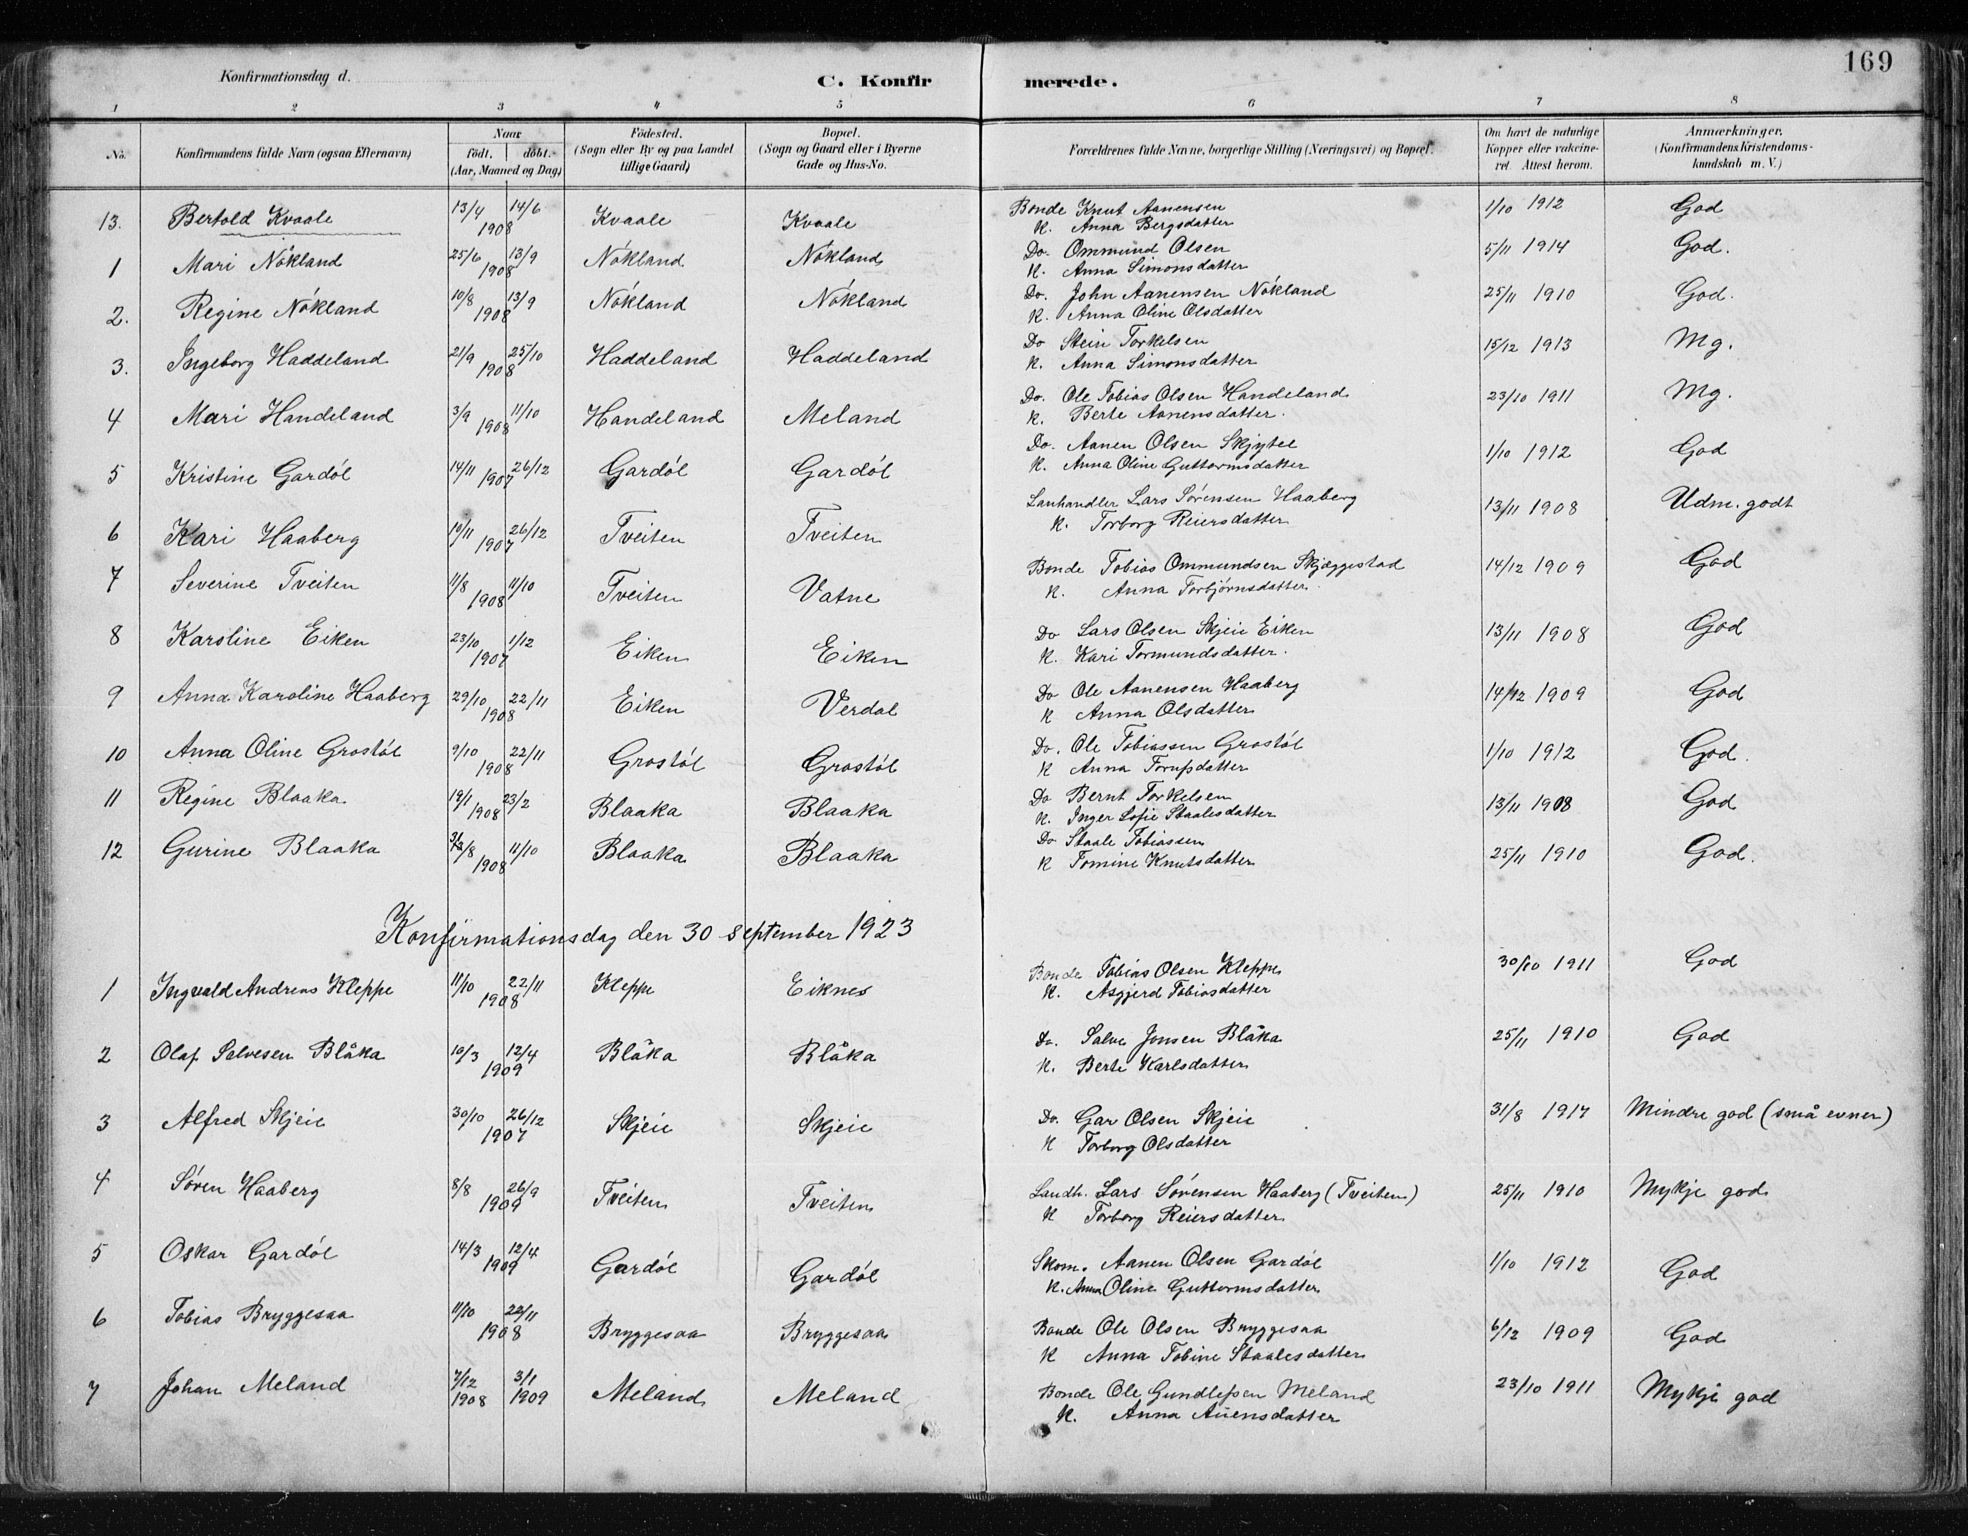 169
Konfirmationsdag d.
C. Konfir merede.
1 2 3 4 5 6 7 8
No. Konfirmandens fulde Navn (ogsaa Efternavn) Naar født. døbt. (Aar, Maaned og Dag) Födested. (Sogn eller By og paa Landet tillige Gaard) Bopæl. (Sogn og Gaard eller i Byerne Gade og Hus-No. Forældrenes fulde Navne, borgerlige Stilling (Næringsvei) og Bopæl. Om havt de naturlige Kopper eller vakcineret. Attest herom. Anmærkninger. (Konfirmandens Kristendomskundskab m. V.)
13. Bertold Kvaale 13/4 14/6 1908 Kvaale Kvaale Bonde Knut Aanensen 1/10 1912 God
K. Anna Bergsdatter
1 Mari Nökland 25/6 13/9 1908 Nökland Nökland Do. Ommund Olsen 5/11 1914 God.
K. Anna Simonsdatter
2. Regine Nökland 10/8 13/9 1908 Nökland Nökland Do. John Aanensen Nökland 25/11 1910 God.
K. Anna Oline Olsdatter
3. Ingeborg Haddeland 21/9 25/10 1908 Haddeland Haddeland Do Stein Torkelsen 15/12 1913 Mg.
K. Anna Simonsdatter
4 Mari Handeland 3/9 11/10 1908 Handeland Meland Do. Ole Tobias Olsen Handeland 23/10 1911 Mg.
K. Berte Aanensdatter.
5 Kristine Gardól 14/11 26/12 1907 Gardól Gardól Do. Aanen Olsen Skjytel 1/10 1912 God
K. Anna Oline Guttormsdatter
6 Kari Haaberg 19/11 26/12 1907 Tveiten Tveiten Lanhandler Lars Sørensen Haaberg 13/11 1908 Udm. godt
K. Torborg Reiersdatter
7 Severine Tveiten 11/8 11/10 1908 Tveiten Vatne Bonde Tobias Ommundsen Skjæggestad 14/12 1909 God
K. Anna Torbjørnsdatter
8 Karoline Eiken 23/10 1/12 1907 Eiken Eiken Do Lars Olsen Skjeie Eiken 13/11 1908 God
K. Kari Tormundsdatter.
9 Anna Karoline Haaberg 29/10 22/11 1908 Eiken Verdal Do Ole Aanensen Haaberg 14/12 1909 God
K Anna Olsdatter
10 Anna Oline Grostól 9/10 22/11 1908 Grostól Grostól Do. Ole Tobiassen Grostól 1/10 1912 God.
K Anna Torupsdatter
11 Regine Blaaka 19/1 23/2 1908 Blaaka Blaaka Do Bernt Torkelsen 13/11 1908 God
K. Inger Sofie Staalesdatter
12 Gurine Blaaka /8 11/10 1908 Blaaka Blaaka Do Staale Tobiassen 25/11 1910 God.
K Tomine Knutsdatter
Konfirmationsdag den 30 september 1923
1 Ingvald Andreas Kleppe 11/10 22/11 1908 Kleppe Eiknes Bonde Tobias Olsen Kleppe 30/10 1911 God
K. Asgjerd Tobiasdatter
2 Olaf Salvesen Blåka 10/3 12/4 1909 Blåka Blåka Do. Salve Jonsen Blåka 25/11 1910 God
K. Berte Karlsdatter
3 Alfred Skjeie 30/10 26/12 1907 Skjeie Skjeie Do. Gar Olsen Skjeie 31/8 1917 Mindre god (små evner)
K Torborg Olsdatter
4 Søren Haaberg 8/8 26/9 1909 Tveiten Tveiten Landh. Lars Sørensen Haaberg (Tveiten) 25/11 1910 Mykje god
K Torborg Reiersdatter
5 Oskar Gardól 14/3 12/4 1909 Gardól Gardól Skom. Aanen Olsen Gardól 1/10 1912 God
K. Anna Oline Guttormsdatter
6 Tobias Bryggesaa 11/10 22/11 1908 Bryggesaa Bryggesaa Bonde Ole Olsen Bryggesaa 6/12 1909 God
K Anna Tobine Staalesdatter
7 Johan Meland 7/12 1908 3/1 1909 Meland Meland Bonde Ole Gundlefsen Meland 23/10 1911 Mykje god
K. Anna Auensdatter